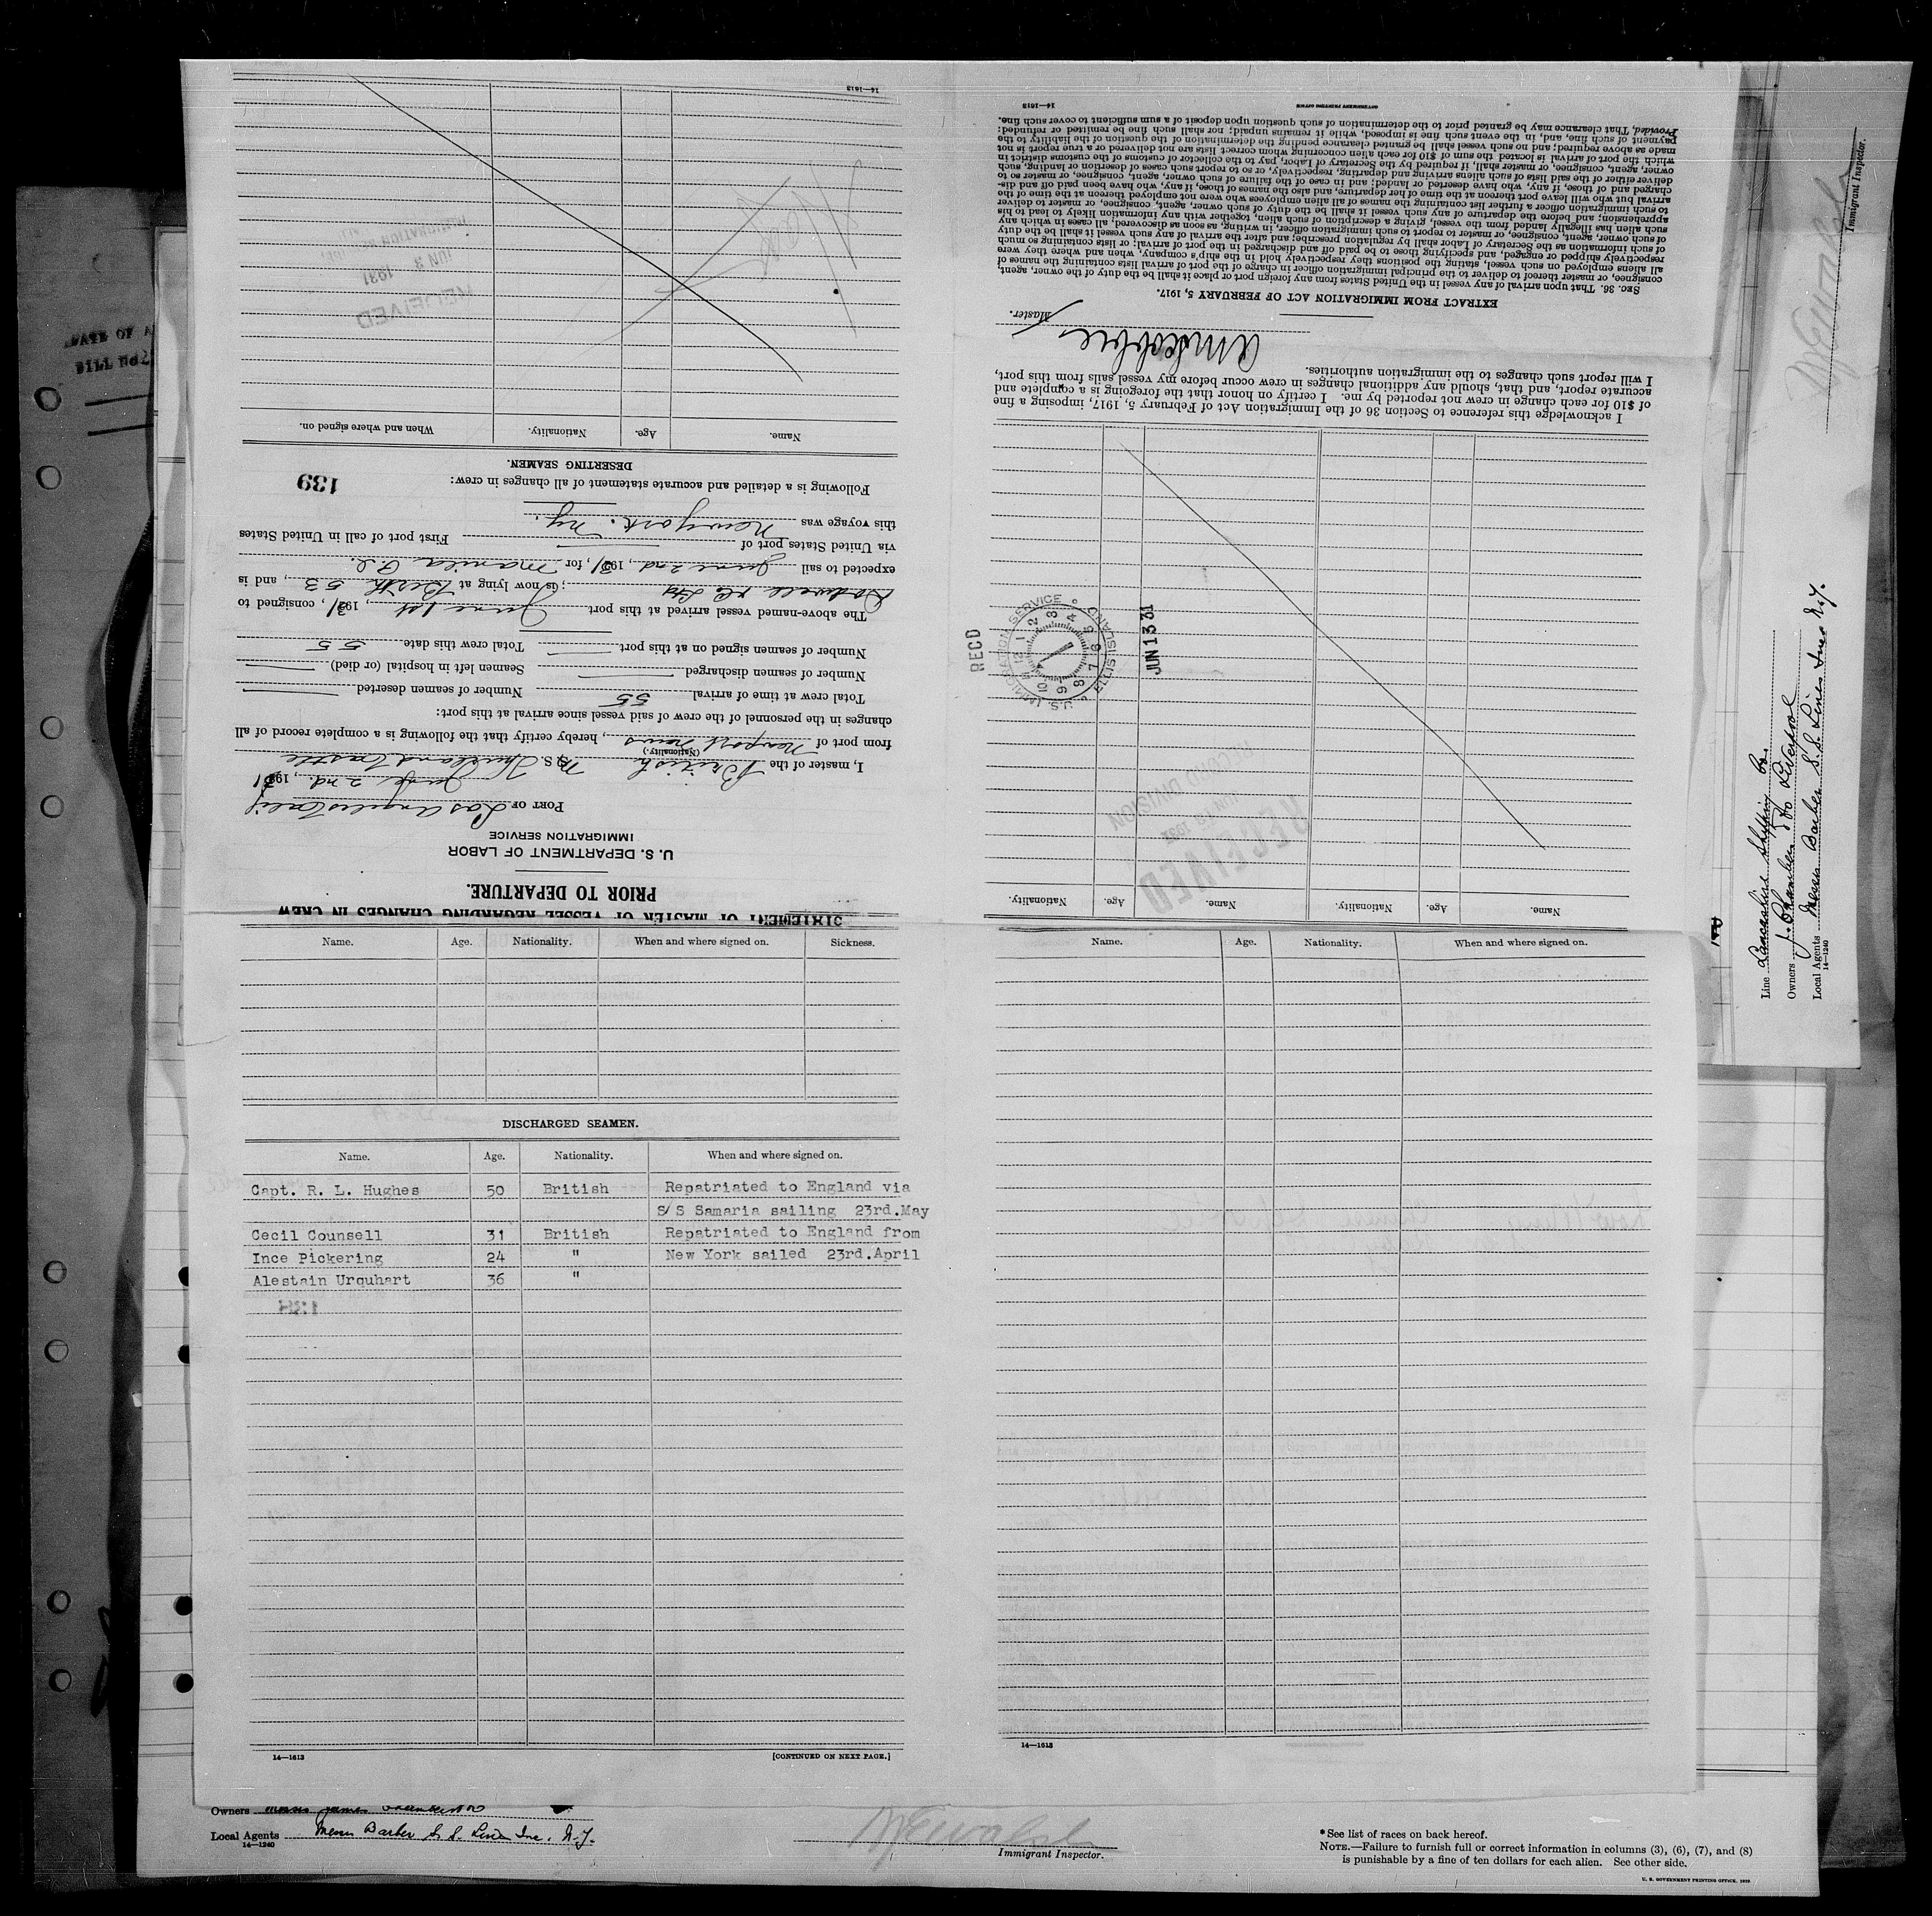 STATEMENT OF MASTER OF VESSEL REGARDING CHANGES IN CREW
PRIOR TO DEPARTURE.
U. S. DEPARTMENT OF LABOR
IMMIGRATION SERVICE
PORT OF Los Angeles Calif
June 2nd., 1931
I, master of the British M S. Thurland Castle
(Nationality.)
from port of Newport News, hereby certify that the following is a complete record of all
changes in the personnel of the crew of said vessel since arrival at this port:
Total crew at time of arrival 55 Number of seamen deserted
Number of seamen discharged Seamen left in hospital (or died)
Number of seamen signed on at this port Total crew this date 55
The above-named vessel arrived at this port June 1st, 1931, consigned to
Dodwell & Co Ltd; is now lying at Berth 53, and is
expected to sail June 2nd, 1931, for Manila P.I.
via United States port of First port of call in United States
this voyage was New York. NY.
Following is a detailed and accurate statement of all changes in crew:
139
DESERTING SEAMEN.
Name. Age. Nationality. When and where signed on.
RECEIVED
JUN 3 1931
14—1613
Name. Age. Nationality. Name. Age. Nationality.
RECEIVED
1931
SECOND DIVISION
RECD
U.S. IMMIGRATION SERVICE
ELLIS ISLAND
JUN 13 31
I acknowledge this reference to Section 36 of the Immigration Act of February 5, 1917, imposing a fine
of $10 for each change in crew not reported by me. I certify on honor that the foregoing is a complete and
accurate report, and that, should any additional changes in crew occur before my vessel sails from this port,
I will report such changes to the immigration authorities.
Master.
EXTRACT FROM IMMIGRATION ACT OF FEBRUARY 5, 1917.
SEC. 36. That upon arrival of any vessel in the United States from any foreign port or place it shall be the duty of the owner, agent,
consignee, or master thereof to deliver to the principal immigration officer in charge of the port of arrival lists containing the names of
all aliens employed on such vessel, stating the positions they respectively hold in the ship's company, when and where they were
respectively shipped or engaged, and specifying those to be paid off and discharged in the port of arrival; or lists containing so much
of such information as the Secretary of Labor shall by regulation prescribe; and after the arrival of any such vessel it shall be the duty
of such owner, agent, consignee, or master to report to such immigration officer, in writing, as soon as discovered, all cases in which any
such alien has illegally landed from the vessel, giving a description of such alien, together with any information likely to lead to his
apprehension; and before the departure of any such vessel it shall be the duty of such owner, agent, consignee, or master to deliver
to such immigration officer a further list containing the names of all alien employees who were not employed thereon at the time of the
arrival but who will leave port thereon at the time of her departure, and also the names of those, if any, who have been paid off and dis-
charged and of those, if any, who have deserted or landed; and in case of the failure of such owner, agent, consignee, or master so to
deliver either of the said lists of such aliens arriving and departing, respectively, or so to report such cases of desertion or landing, such
owner, agent, consignee, or master shall, if required by the Secretary of Labor, pay to the collector of customs of the customs district in
which the port of arrival is located the sum of $10 for each alien concerning whom correct lists are not delivered or a true report is not
made as above required; and no such vessel shall be granted clearance pending the determination of the question of the liability to the
payment of such fine, and, in the event such fine is imposed, while it remains unpaid; nor shall such fine be remitted or refunded:
Provided, That clearance may be granted prior to the determination of such question upon deposit of a sum sufficient to cover such fine.
14—1613
GOVERNMENT PRINTING OFFICE
Name. Age. Nationality. When and where signed on. Sickness.
DISCHARGED SEAMEN.
Name. Age. Nationality. When and where signed on.
Capt. R. L. Hughes 50 British Repatriated to England via
S/S Samaria sailing 23rd.May
Cecil Counsell 31 British Repatriated to England from
Ince Pickering 24 " New York sailed 23rd.April
Alestain Urquhart 36 "
14—1613 [CONTINUED ON NEXT PAGE.]
Name. Age. Nationality. When and where signed on.
14—1613
Line Lancashire Shipping Co.
Owners J. Chambers & Co Liverpool
Local Agents Messrs Barber S.S. Lines Inc N.Y.
14—1240
Immigrant Inspector.
Owners Messrs James Chambers & Co
Local Agents Messrs Barber S. S. Lines Inc. N.Y.
14—1240
Immigrant Inspector.
*See list of races on back hereof.
NOTE.—Failure to furnish full or correct information in columns (3), (6), (7), and (8)
is punishable by a fine of ten dollars for each alien. See other side.
U. S. GOVERNMENT PRINTING OFFICE